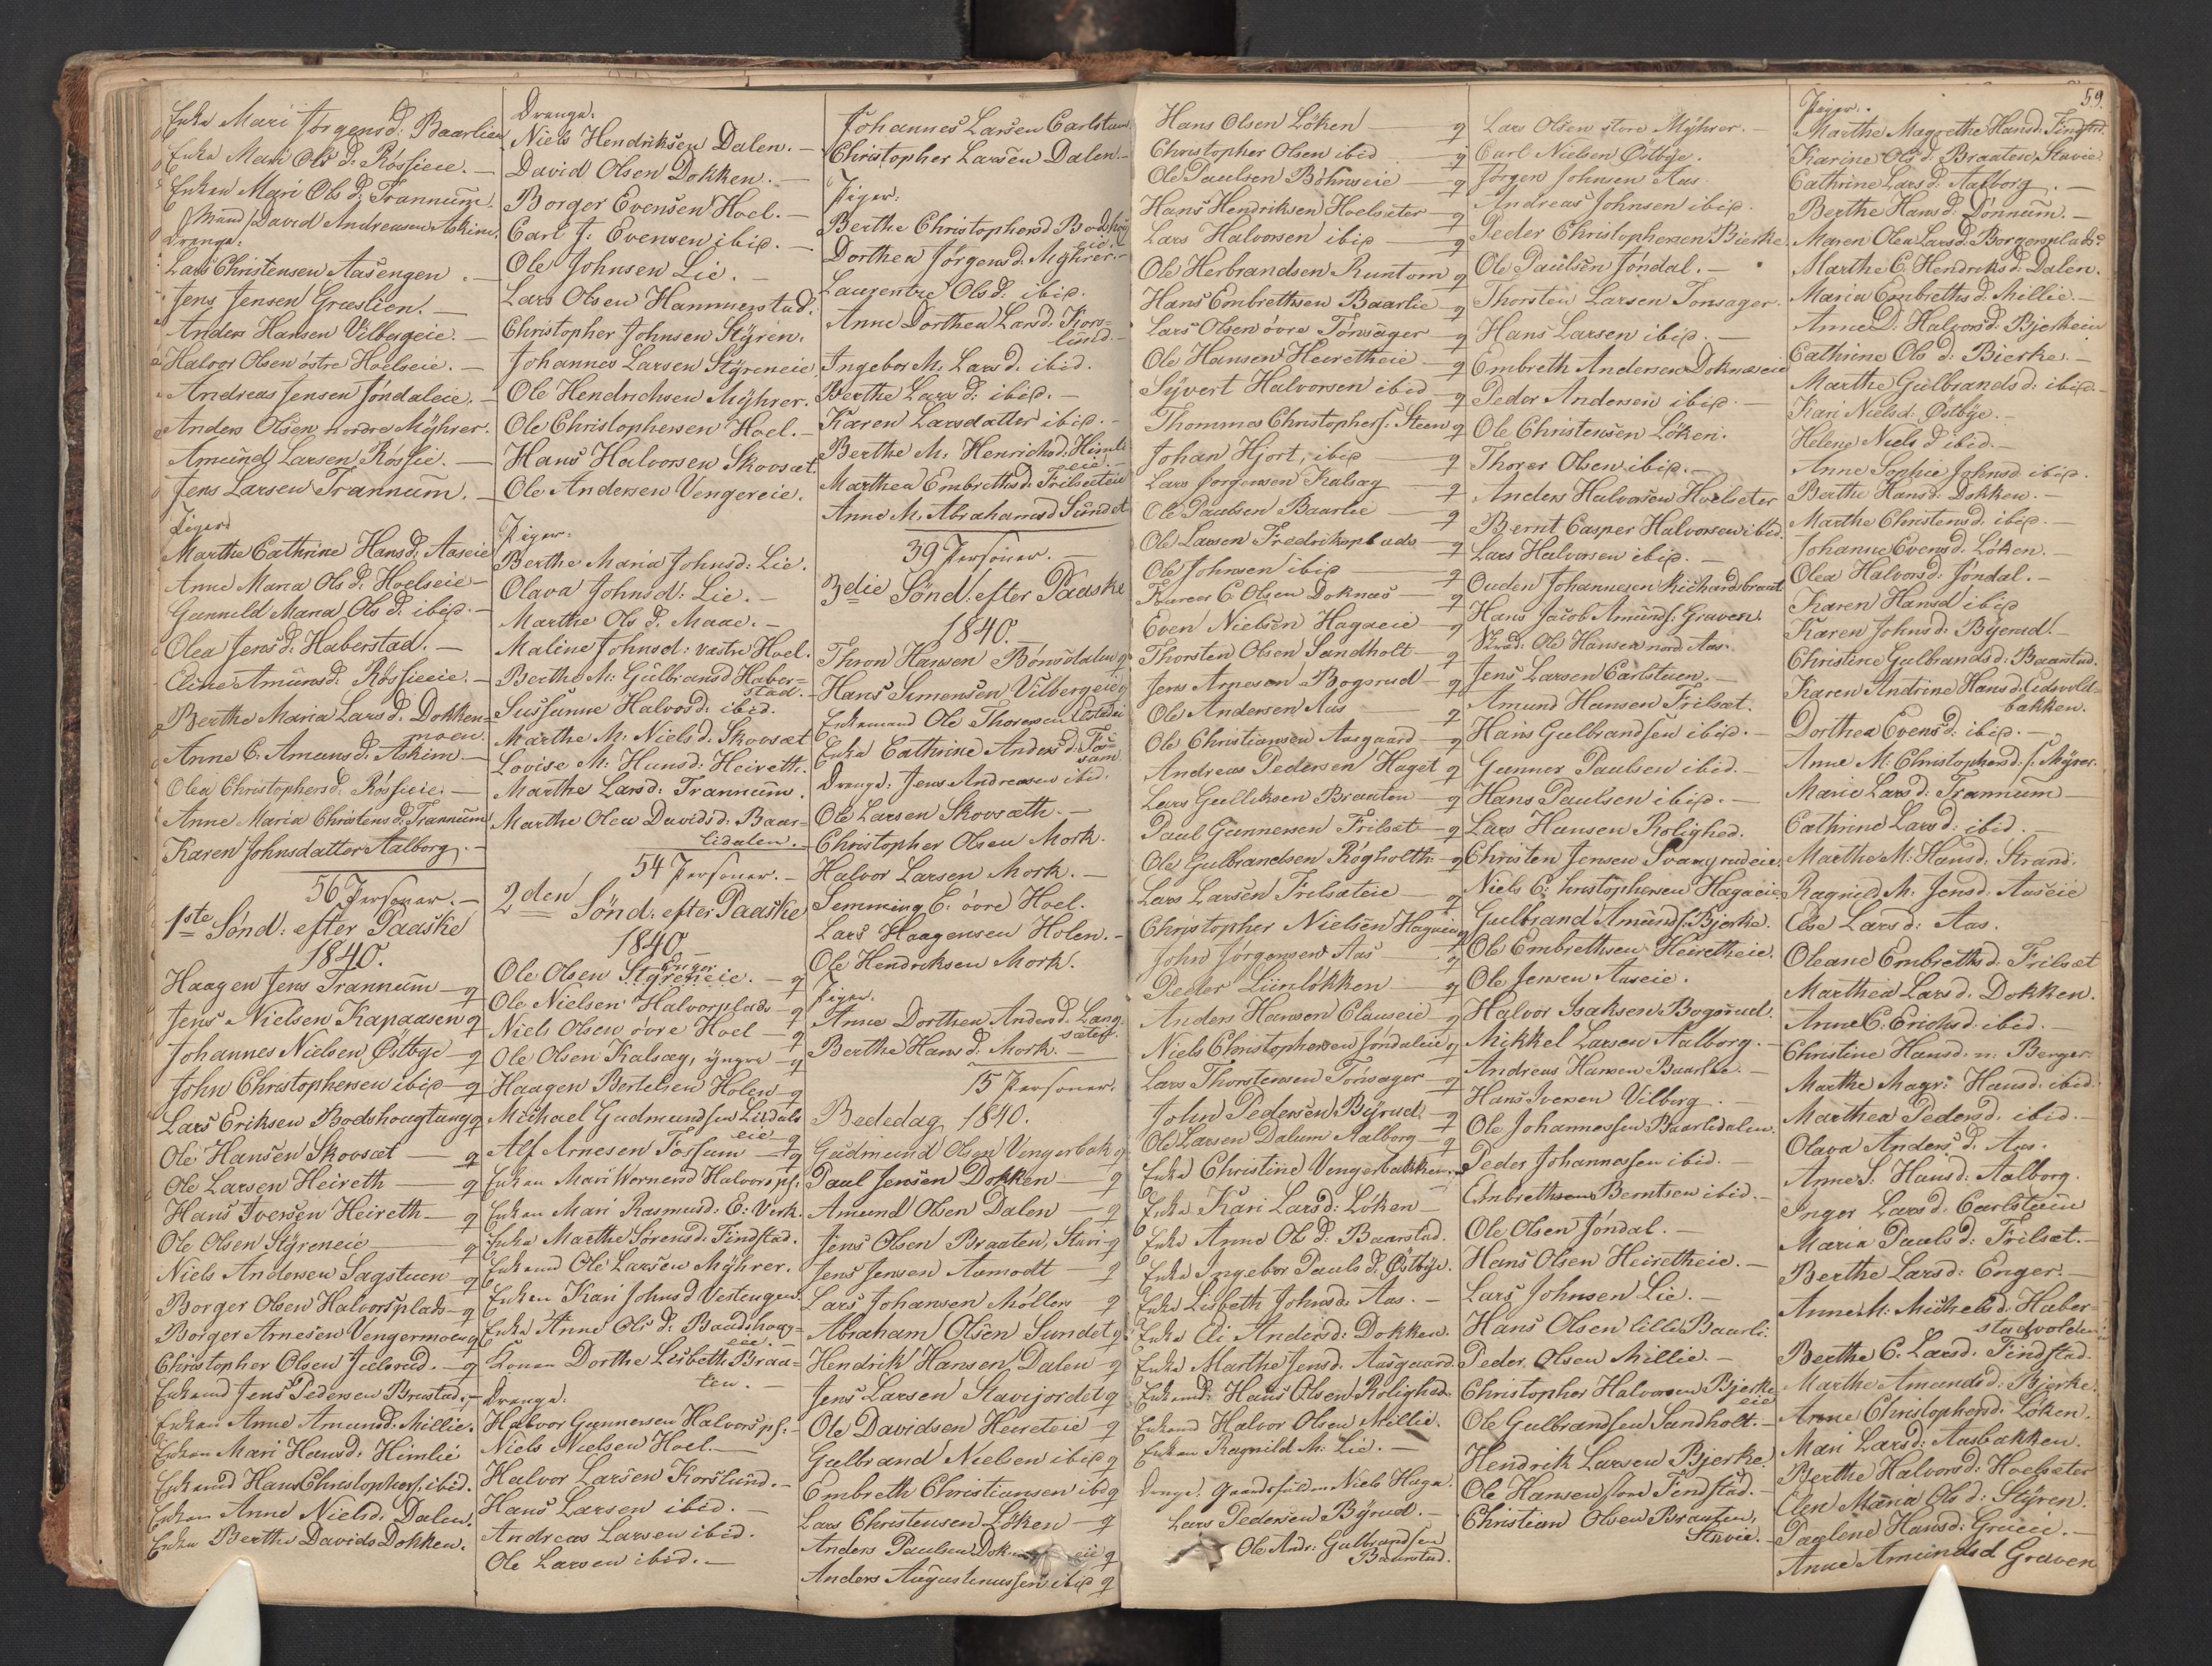 Enke Mari Jørgensd: Baarlien
Enke Mari Ols d: Røssieie. —
Enken Mari Ols d: Trannum.
Mand/ David Andreasen Askim.
Drenge:
Lars Christensen Aasengen. —
Jens Jensen Græslien. —
Anders Hansen Vilbergeie. —
Halvor Olsen østre Hoelseie. —
Andreas Jensen Jøndaleie. —
Anders Olsen nordre Myhrer.
Amund Larsen Røssie. —
Jens Larsen Trannum. —
Piger:
Marthe Cathrine Hansd: Aaseie
Anne Maria Ols d: Hoelseie —
Gunnild Maria Ols d: ibid. —
Olea Jensd: Haberstad. —
Eline Amunsd: Røssieeie. —
Berthe Maria Larsd: Dokken=
moen.
Anne C. Amunsd: Askim. —
Olea Christophersd: Røssieie. —
Anne Maria Christensd: Trannum
Karen Johnsdatter Aalborg. —
56 Personer. —
1ste Sønd: efter Paaske
1840.
Haagen Jens Trannum — g
Jens Nielsen Kapaasen g
Johannes Nielsen Østbye — g
John Christophersen ibid — g
Lars Eriksen Bodshougtangg
Ole Hansen Skovsæt — g
Ole Larsen Heireth — g
Hans Iversen Heireth — g
Ole Olsen Styreneie — g
Niels Andersen Sagstuen — g
Borger Olsen Halvorsplads — g
Borger Arnesen Vengermoen g
Christopher Olsen Julsrud. — g
Enkemd Jens Pedersen Brustad. —
Enken Anne Amunsd: Millie.
Enken Mari Hansd: Himlie
Enkemd Hans Christophers. ibid.
Enken Anne Nielsd: Dalen.
Enken Berthe Davids Dokken.
Drenge.
Niels Hendriksen Dalen. —
David Olsen Dokken. —
Borger Evensen Hoel. —
Carl J: Evensen ibid. —
Ole Johnsen Lie. —
Lars Olsen Hammerstad.
Christopher Johnsen Styren.
Johannes Larsen Styreneie
Ole Hendrichsen Myhrer.
Ole Christophersen Hoel. —
Hans Halvorsen Skovsæt.
Ole Andersen Vengereie.
Piger:
Berthe Maria Johnsd: Lie.
Olava Johnsd: Lie. —
Marthe Ols d. Maae. —
Maline Johnsd: vestre Hoel.
Berthe M: Gulbransd Haber=
stad. —
Sussanne Halvosd: ibid.
Marthe M: Nielsd. Skovsæt
Lovise M: Hansd: Heireth.
Marthe Larsd: Trannum.
Marthe Olea Davidsd: Baar=
lidalen. —
54 Personer. —
2den Sønd: efter Paaske
1840. —
Enger
Ole Olsen Styreneie. — g
Ole Nielsen Halvorplads — g
Niels Olsen øvre Hoel — g
Ole Olsen Kalsæg, yngre — g
Haagen Bertelsen Holen — g
Michael Gudmundsen Lisdals
eie — g
Alf Arnesen Fossum — g
Enken Mari Wernersd Halvorspl.
Enken Mari Rasmusd: E: Verk.
Enke Marthe Sørensd: Findstad.
Enkemd Ole Larsen Myhrer.
Enken Kari Johnsd Vestengen
Enke Anne Ols d: Baadshoug=
eie. —
Konen Dorthe Lisbeth Braa=
ten. —
Drenge.
Halvor Gunnersen Halvorspl. —
Niels Nielsen Hoel. —
Halvor Larsen Korslund. —
Hans Larsen ibid. —
Andreas Larsen ibid.
Ole Larsen ibid. —
Johannes Larsen Carlstuen
Christopher Larsen Dalen. —
Piger:
Berthe Christophersd Bodshoug
eie. —
Dorthea Jørgensd: Myhrer. —
Laurentze Ols d: ibid.
Anne Dorthea Larsd: Kors=
lund. —
Ingebor M. Larsd. ibid.
Berthe Larsd: ibid. —
Karen Larsdatter ibid. —
Berthe M. Henrichsd. Himli
eie. —
Marthea Embrethsd: Frilseteie
Anne M. Abrahamsd Sundet
39 Personer. —
3die Sønd: efter Paaske
1840. —
Thron Hansen Bønsdalen g
Hans Simensen Vilbergeie g
Enkemand Ole Thoresen
Enke Cathrine Andersd:
Drenge. Jens Andreasen ibid.
Ole Larsen Skovsæth. —
Christopher Olsen Mork.
Halvor Larsen Mork. —
Semming E: øvre Hoel.
Lars Haagensen Holen. —
Ole Hendriksen Mork.
Piger.
Anne Dorthea Andersd. Lang=
sæter.
Berthe Hansd. Mork. —
15 Personer.
Bededag 1840.
Gudmund Olsen Vengerbak g
Paul Jensen Dokken — g
Amund Olsen Dalen — g
Jens Olsen Braaten, Stavi — g
Jens Jensen Aamodt — g
Lars Johansen Møllers g
Abraham Olsen Sundet g
Hendrik Hansen Dalen — g
Jens Larsen Stavijordet g
Ole Davidsen Heireteie g
Gulbrand Nielsen ibid g
Embreth Christiansen ibid g
Lars Christensen Løken — g
Anders Paulsen eie g
Anders Augustinussen ibid g
59.
Hans Olsen Løken — g
Christopher Olsen ibid — g
Ole Paulsen Bøhnseie — g
Hans Hendriksen Hoelsæter — g
Lars Halvorsen ibid — g
Ole Herbrandsen Runtom g
Hans Embrethsen Baarlie — g
Lars Olsen øvre Tønsager — g
Ole Hansen Heiretheie — g
Syvert Halvorsen ibid — g
Thommes Christophers. Steen g
Johan Hjort, ibid — g
Lars Jørgensen Kalsæg — g
Ole Paulsen Baarlie — g
Ole Larsen Fredriksplads — g
Ole Johnsen ibid — g
C Olsen Doknæs — g
Even Nielsen Hagaeie — g
Thorsten Olsen Sandholt — g
Jens Arnesen Bogsrud — g
Ole Andersen Aas — g
Ole Christiansen Aasgaard — g
Andreas Pedersen Haget g
Lars Gulliksen Braaten — g
Paul Gunnersen Frilset — g
Ole Gulbrandsen Røgholth: — g
Lars Larsen Frilsæteie — g
Christopher Nielsen Hagaeie g
John Jørgensen Aas — g
Peder Lunløkken — g
Anders Hansen Clauseie — g
Niels Christophersen Jøndaleie g
Lars Thorstensen Tønsager — g
John Pedersen Byrud — g
Ole Larsen Dalum Aalborg — g
Enke Christine Vengerbakken. —
Enke Kari Larsd: Løken —
Enke Anne Ols d: Baarstad.
Enke Ingebor Pauls d: Østbye.
Enke Lisbeth Johnsd: Aas. —
Enke Eli Andersd: Dokken.
Enke Marthe Jensd. Aasgaard.
Enkemd: Hans Olsen Rolighed.
Enkemd Halvor Olsen Millie.
Enken Ragnild M: Lie. —
Drenge. Niels Haga.
Lars Pedersen Byrud. —
Ole Andr: Gulbrandsen
Baarstad.
Lars Olsen store Myhrer. —
Carl Nielsen Østbye.
Jørgen Johnsen Aas.
Andreas Johnsen ibid.
Peder Christophersen Bierke.
Ole Paulsen Jøndal. —
Thorsten Larsen Tonsager.
Hans Larsen ibid. —
Embreth Andersen Doknæseie
Peder Andersen ibid. —
Ole Christensen Løken.
Thorer Olsen ibid. —
Anders Halvorsen Hoelsæter
Bernt Casper Halvorsen ibid.
Lars Halvorsen ibid. —
Ouden Johannesen Richardsbraat
Hans Jacob Amunds: Graven.
Ole Hansen nord Aas.
Jens Larsen Carlstuen. —
Amund Hansen Frilsæt.
Hans Gulbrandsen ibid. —
Gunner Paulsen ibid. —
Hans Paulsen ibid. —
Lars Hansen Rolighed.
Christen Jensen Svangrudeie.
Niels C. Christophersen Hagaeie
Gulbrand Amunds: Bjerke.
Ole Embrethsen Heiretheie.
Ole Jensen Aaseie.
Halvor Isaksen Bogsrud.
Mikkel Larsen Aalborg. —
Andreas Hansen Baarlie. —
Hans Iversen Vilberg. —
Ole Johannessen Baarlidalen.
Peder Johannessen ibid. —
Embrethsen Berntsen ibid. —
Ole Olsen Jøndal. —
Hans Olsen Heiretheie. —
Lars Johnsen Lie. —
Hans Olsen lille Baarli.
Peder Olsen Millie. —
Christopher Halvorsen Bjerke
eie
Ole Gulbrandsen Sandholt. —
Hendrik Larsen Bjerke.
Ole Hansen store Findstad. —
Christian Olsen Braaten,
Stavie. —
Piger. —
Marthe Magrethe Hansd: Findstad.
Karine Ols d. Braaten, Stavie
Cathrine Larsd: Aalborg. —
Berthe Hansd: Dønnum. —
Maren Olea Larsd: Borgersplads.
Marthe C. Hendriksd: Dalen.
Maria Embrethsd: Millie. —
Anne D: Halvorsd: Bjerkeie
Cathrine Ols d: Bierke. —
Marthe Gulbrandsd: ibid. —
Kari Nielsd: Østbye. —
Helene Niels d ibid. —
Anne Sophie Johnsd. ibid.
Berthe Hansd: Dokken. —
Marthe Christensd: ibid. —
Johanne Evensd. Løken. —
Olea Halvorsd: Jøndal. —
Karen Hansd ibid
Karen Johnsd: Byerud. —
Christine Gulbrandsd: Baarstad.
Karen Andrine Hansd: Eidsvold=
bakken.
Dorthea Evensd: ibid. —
Anne M: Christophersd: s. Myrer.
Marie Larsd: Trannum —
Cathrine Larsd: ibid. —
Marthe M: Hansd. Strand.
Ragnild M: Jensd: Aaseie
Else Larsd: Aas.
Oleane Embrethsd: Frilsæt
Marthea Larsd. Dokken.
Anne C. Eriksd: ibid. —
Christine Hansd: n: Berger.
Marthe Magr: Hansd: ibid.
Marthea Pedersd. ibid. —
Olava Anders d. Aas.
Anne S. Hansd: Aalborg.
Inger Larsd. Carlstuen
Maria Paulsd: Frilsæt. —
Berthe Larsd: Enger. —
Anne M: Michelsd: Haber=
stadvolden
Berthe C. Larsd. Findstad.
Marthe Amundsd: Bjerke.
Anne Christophersd: Løken.
Mari Larsd: Aasbakken.
Berthe Halvorsd: Hoelsæter
Elen Maria Ols d: Styren.
Paglene Hansd: Greieie. —
Anne Amundsd Graven